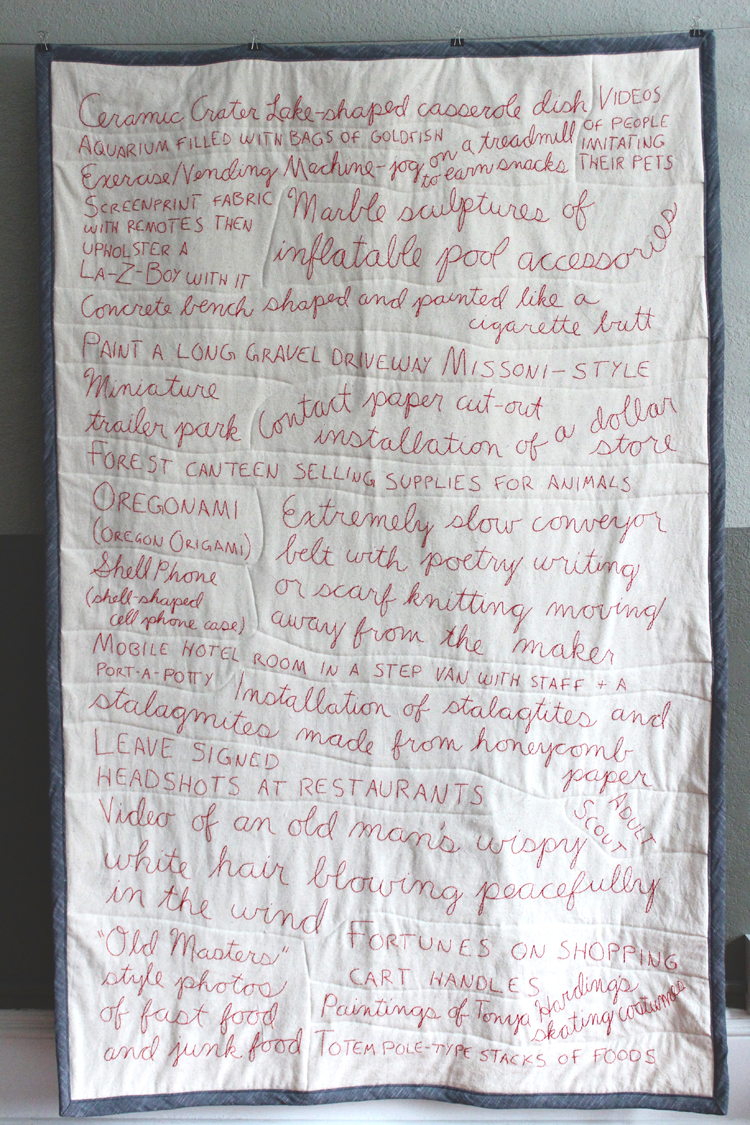 Ceramic Crater Lake-shaped casserole dish
VIDEOS
OF PEOPLE
IMITATING
THEIR PETS
AQUARIUM FILLED WITH BAGS OF GOLDFISH
Exercise/Vending Machine-jog on a treadmill
to earn snacks
SCREENPRINT FABRIC
WITH REMOTES THEN
UPHOLSTER A
LA-Z-BOY WITH IT
Marble sculptures of
inflatable pool accessories
Concrete bench shaped and painted like a
cigarette butt
PAINT A LONG GRAVEL DRIVEWAY MISSONI-STYLE
Miniature
trailer park
Contact paper cut-out
installation of a dollar
store
FOREST CANTEEN SELLING SUPPLIES FOR ANIMALS
OREGONAMI
(OREGON ORIGAMI)
Extremely slow conveyor
belt with poetry writing
or scarf knitting moving
away from the maker
Shell Phone
(shell-shaped
cell phone case)
MOBILE HOTEL ROOM IN A STEP VAN WITH STAFF + A
PORT-A-POTTY
Installation of stalagtites and
stalagmites made from honeycomb
paper
LEAVE SIGNED
HEADSHOTS AT RESTAURANTS
ADULT
SCOUT
Video of an old man's wispy
white hair blowing peacefully
in the wind
"Old Masters"
style photos
of fast food
and junk food
FORTUNES ON SHOPPING
CART HANDLES
Paintings of Tonya Harding's
skating costumes
TOTEM POLE-TYPE STACKS OF FOODS